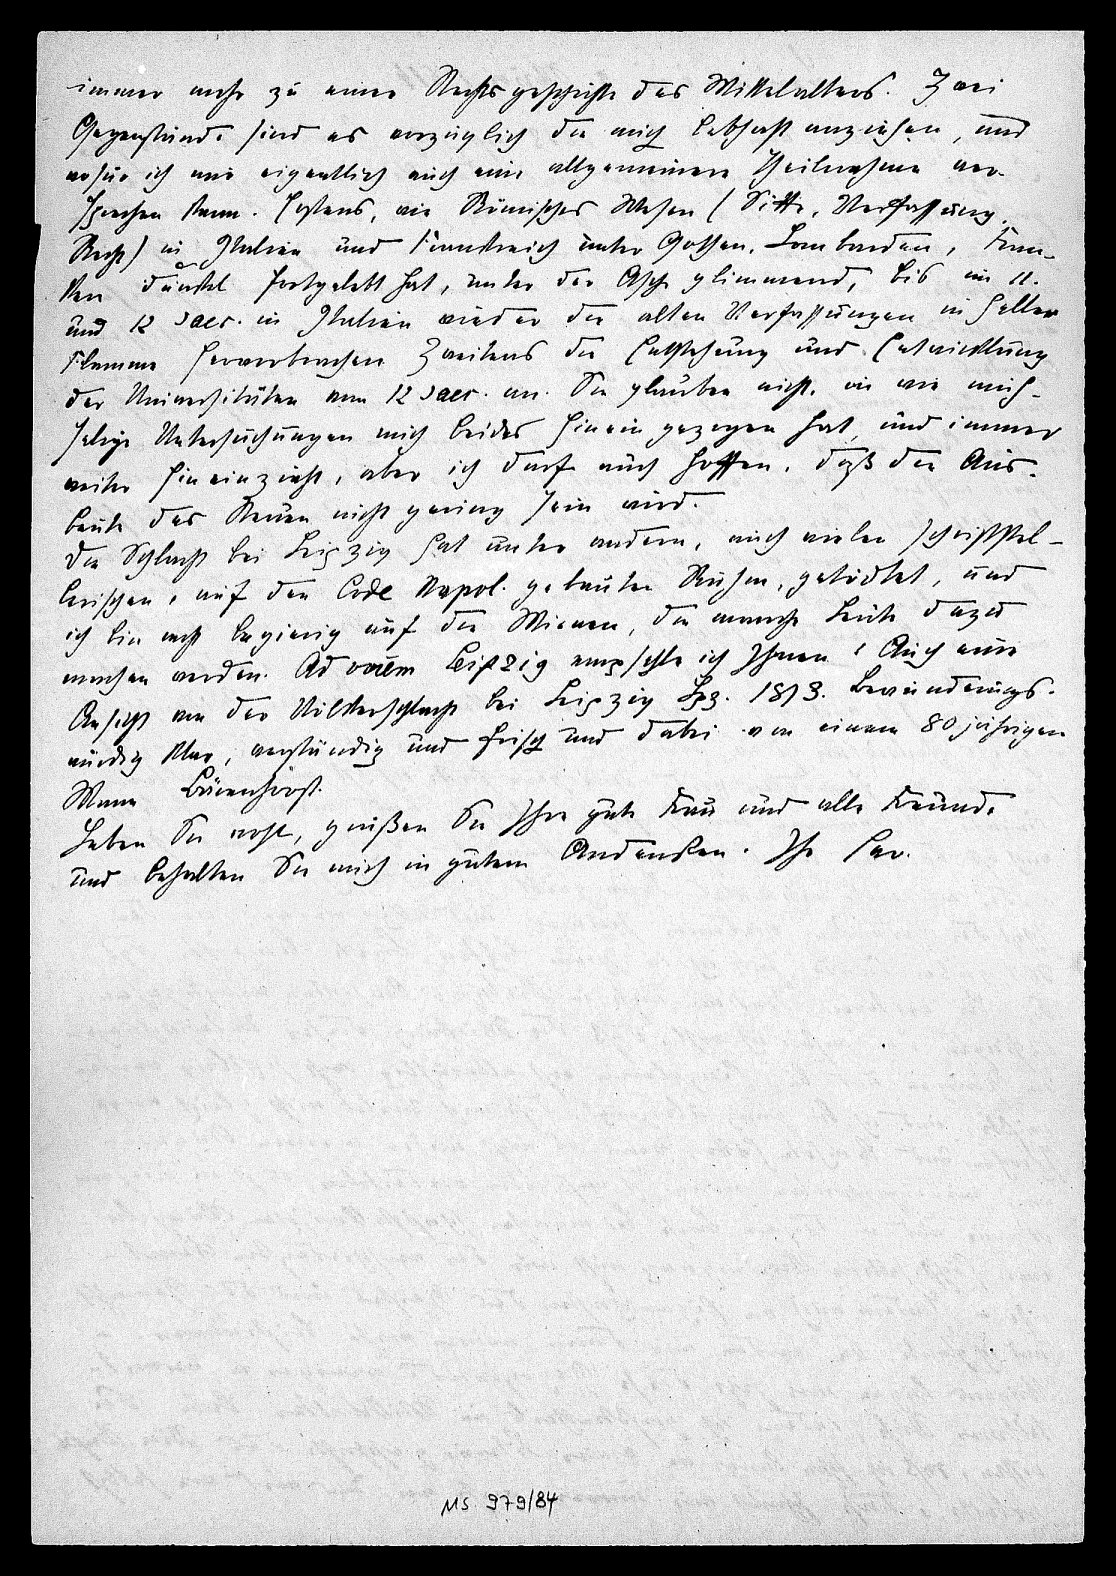 immer mehr zu einer Rechtsgeschichte des Mittelalters. Zwei
Gegenstände sind es vorzüglich die mich lebhaft anziehen, und
wofür ich mir eigentlich auch eine allgemeinere Theilnahme ver-
sprechen kann. Erstens, wie Römisches Wesen (Sitte, Verfassung,
Recht) in Italien und Frankreich unter Gothen, Lombarden, Fran-
ken dunkel fortgelebt hat, unter der Asche glimmend, bis im 11.
und 12 Saec. in Italien wieder die alten Verfassungen in heller
Flamme hervorbrachen Zweitens die Entstehung und Entwicklung
der Universitäten vom 12 Saec. an. Sie glauben nicht, in wie müh-
selige Untersuchungen mich beides hineingezogen hat, und immer
weiter hineinzieht, aber ich darf auch hoffen, daß die Aus-
beute des Neuen nicht gering sein wird.
Die Schlacht bei Leipzig hat unter andern, auch vielen schriftstel-
lerischen, auf den Code Napol. gebauten Ruhm, getödtet, und
ich bin recht begierig auf die Mienen, die manche Leute dazu
machen werden. Ad vocem Leipzig empfehle ich Ihnen: Auch eine
Ansicht von der Völkerschlacht bei Leipzig Lpz. 1813. Bewunderungs-
würdig klar, verständig und frisch und dabei von einem 80 jährigen
Mann Bärenhorst.
Leben Sie wohl, grüßen Sie Ihre gute Frau und alle Freunde
und behalten Sie mich in gutem Andenken. Ihr Sav.
MS 979/84